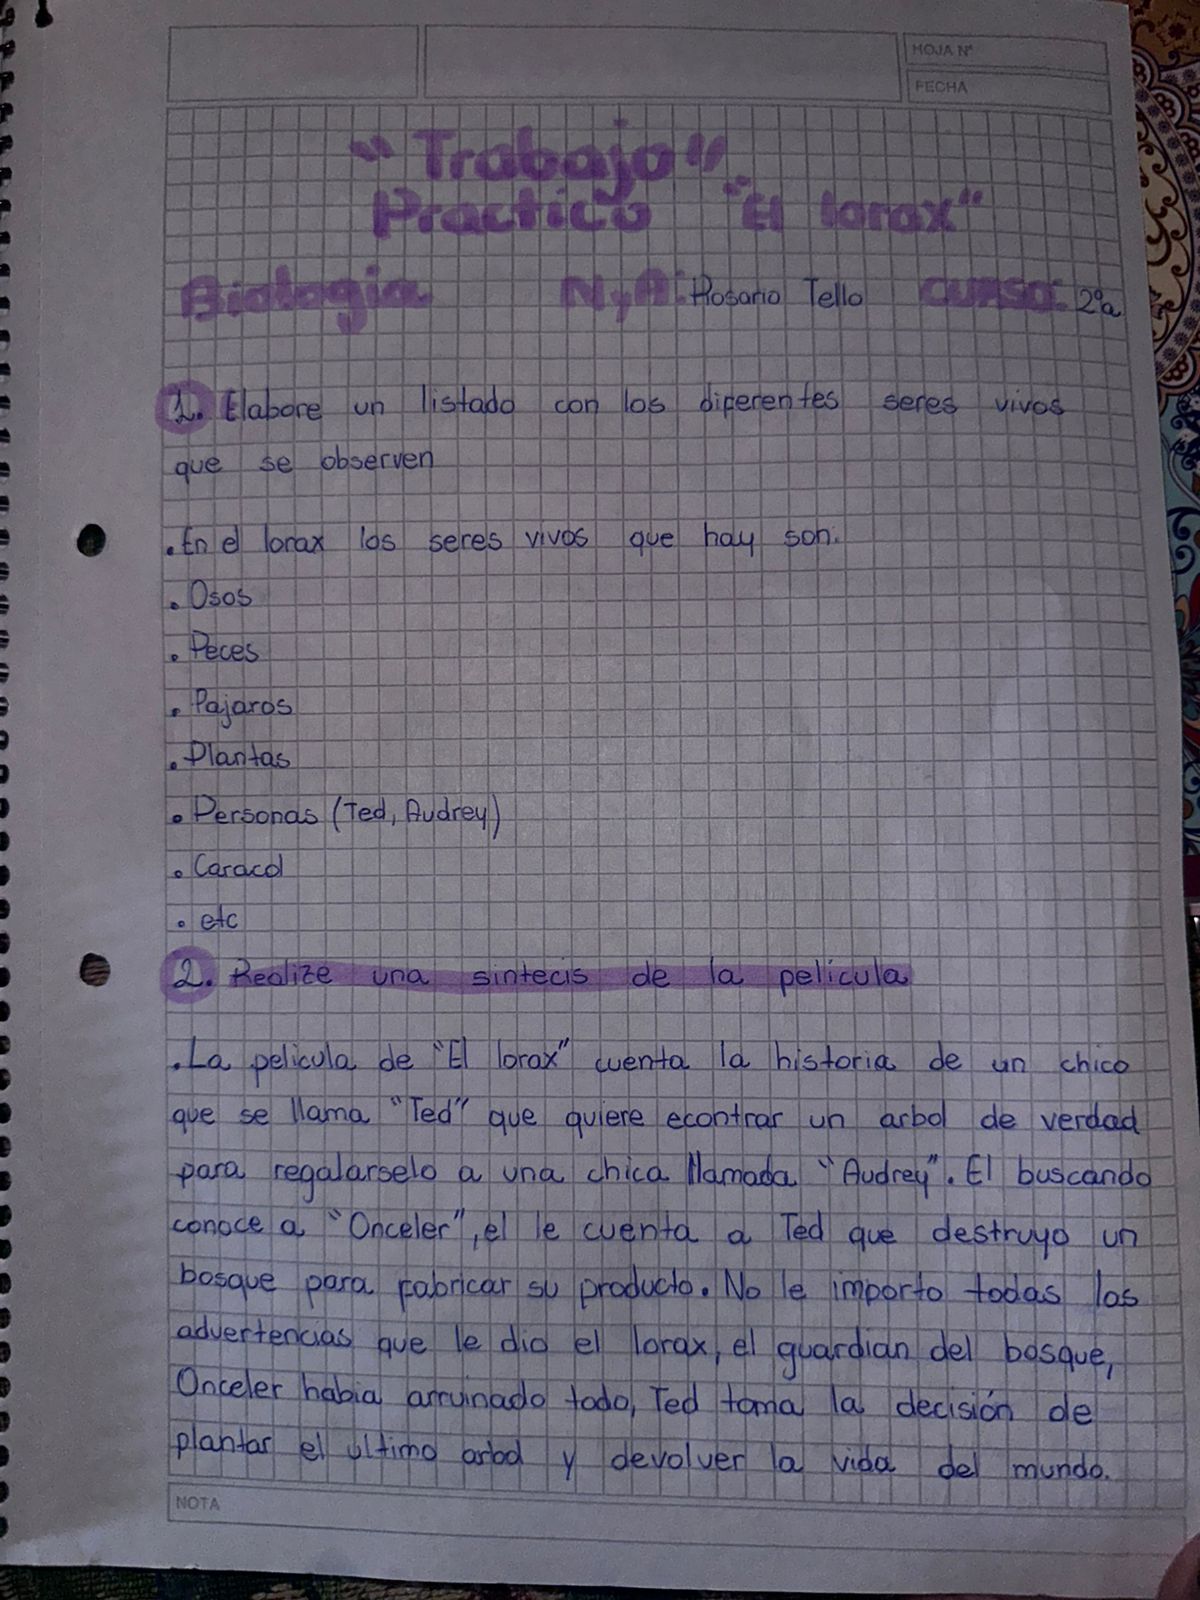 HOJA N°
FECHA
"Trabajo"
Practico "El lorax"
Biologia NyA: Rosario Tello CURSO: 2°a
1. Elabore un listado con los diferentes seres vivos
que se observen
. En el lorax los seres vivos que hay son:
. Osos
. Peces
. Pajaros
. Plantas
. Personas (Ted, Audrey)
. Caracol
. etc
2. Realize una sintecis de la película
. La pelicula de "El lorax" cuenta la historia de un chico
que se llama "Ted" que quiere econtrar un arbol de verdad
para regalarselo a una chica llamada "Audrey". El buscando
conoce a "Onceler", el le cuenta a Ted que destruyo un
bosque para fabricar su producto. No le importo todas las
advertencias que le dio el lorax, el guardian del bosque,
Onceler habia arruinado todo, Ted toma la decisión de
plantar el último arbol y devolver la vida del mundo.
NOTA